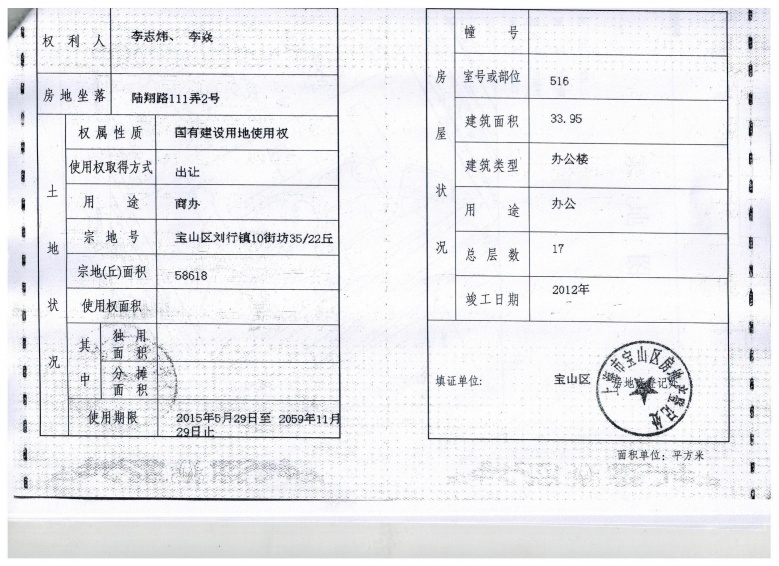 权利人 李志炜、 李焱
房地坐落 陆翔路111弄2号
土地状况
权属性质 国有建设用地使用权
使用权取得方式 出让
用途 商办
宗地号 宝山区刘行镇10街坊35/22丘
宗地(丘)面积 58618
使用权面积
其中
独用面积
分摊面积
使用期限 2015年5月29日至 2059年11月
29日止
房屋状况
幢号
室号或部位 516
建筑面积 33.95
建筑类型 办公楼
用途 办公
总层数 17
竣工日期 2012年
填证单位: 宝山区房地产登记处
上海市宝山区房地产登记处
面积单位: 平方米